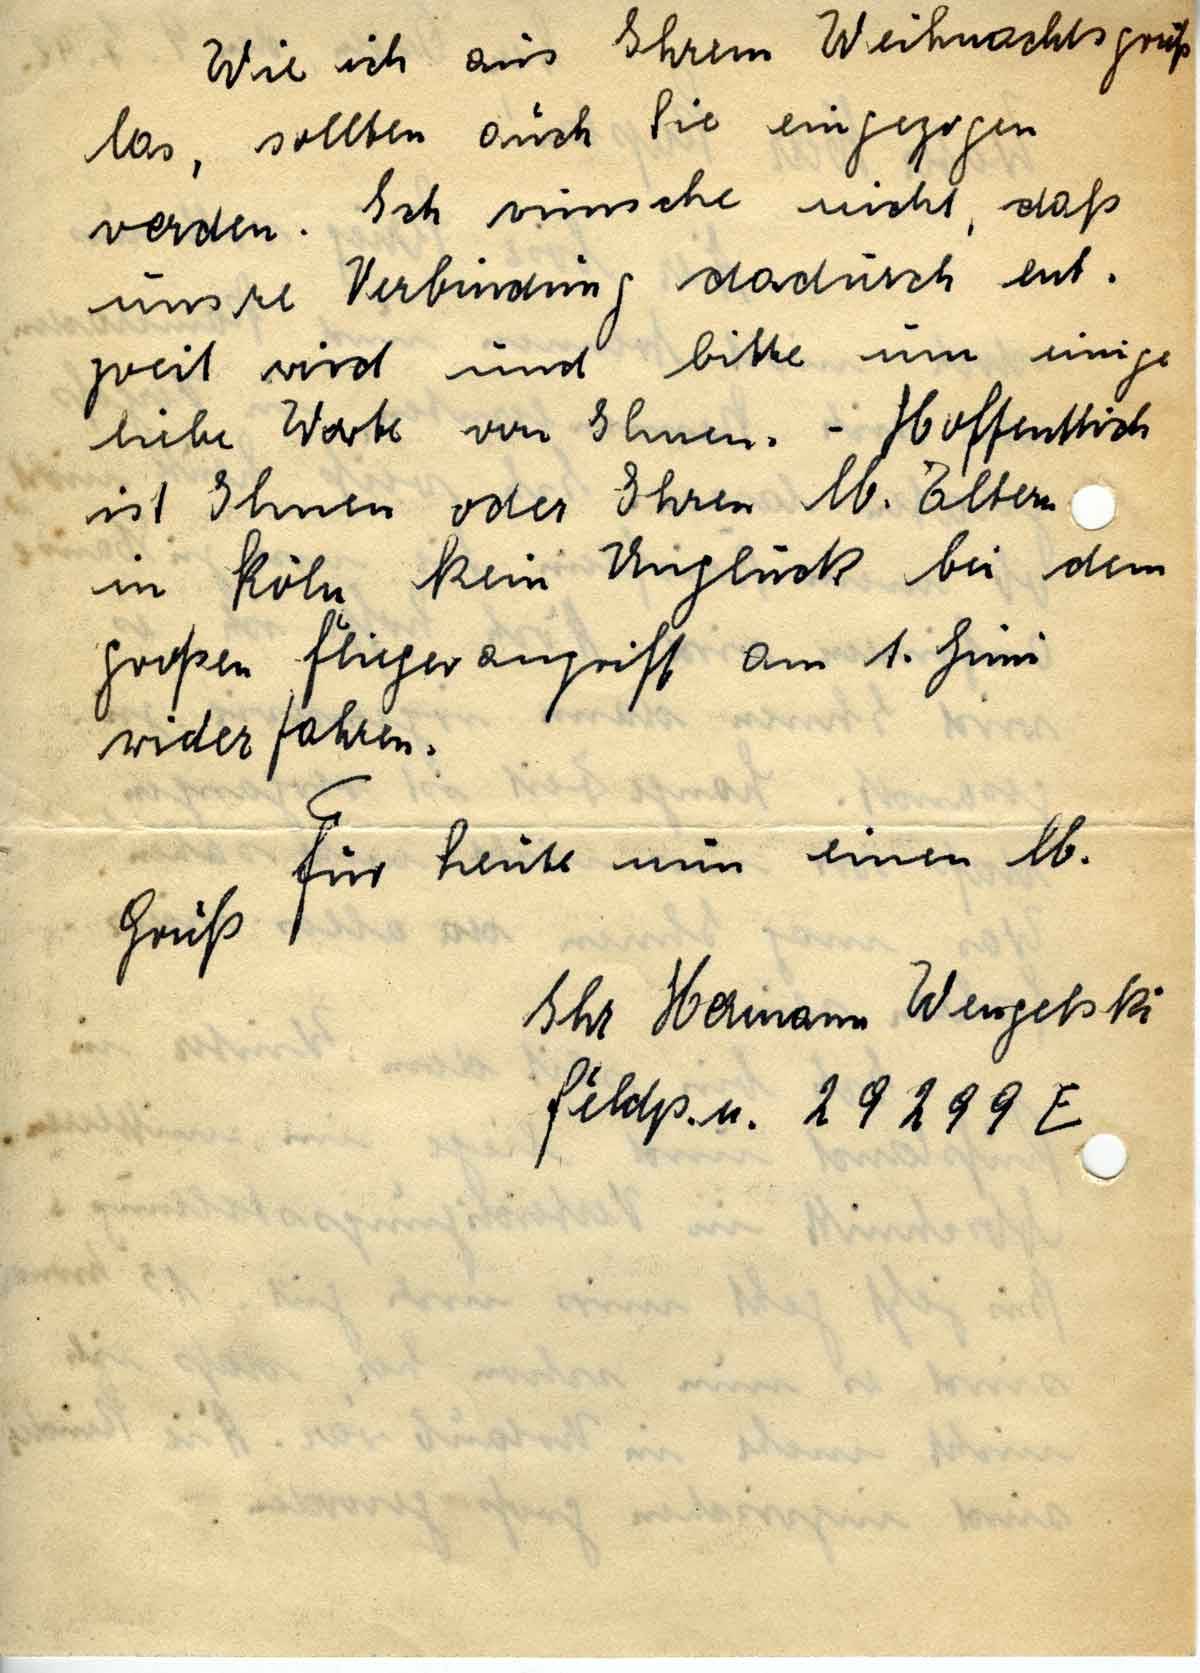 Wie ich aus Ihrem Weihnachtsgruß
las, sollten auch Sie eingezogen
werden. Ich wünsche nicht, daß
unsre Verbindung dadurch ent.
zweit wird und bitte um einige
liebe Worte von Ihnen. - Hoffentlich
ist Ihnen oder Ihren lb. Eltern
in Köln kein Unglück bei dem
großen Fliegerangriff am 1. Juni
widerfahren.
Für heute nun einen lb.
Gruß
Ihr Hermann Wengelski
Feldp.n. 29299 E